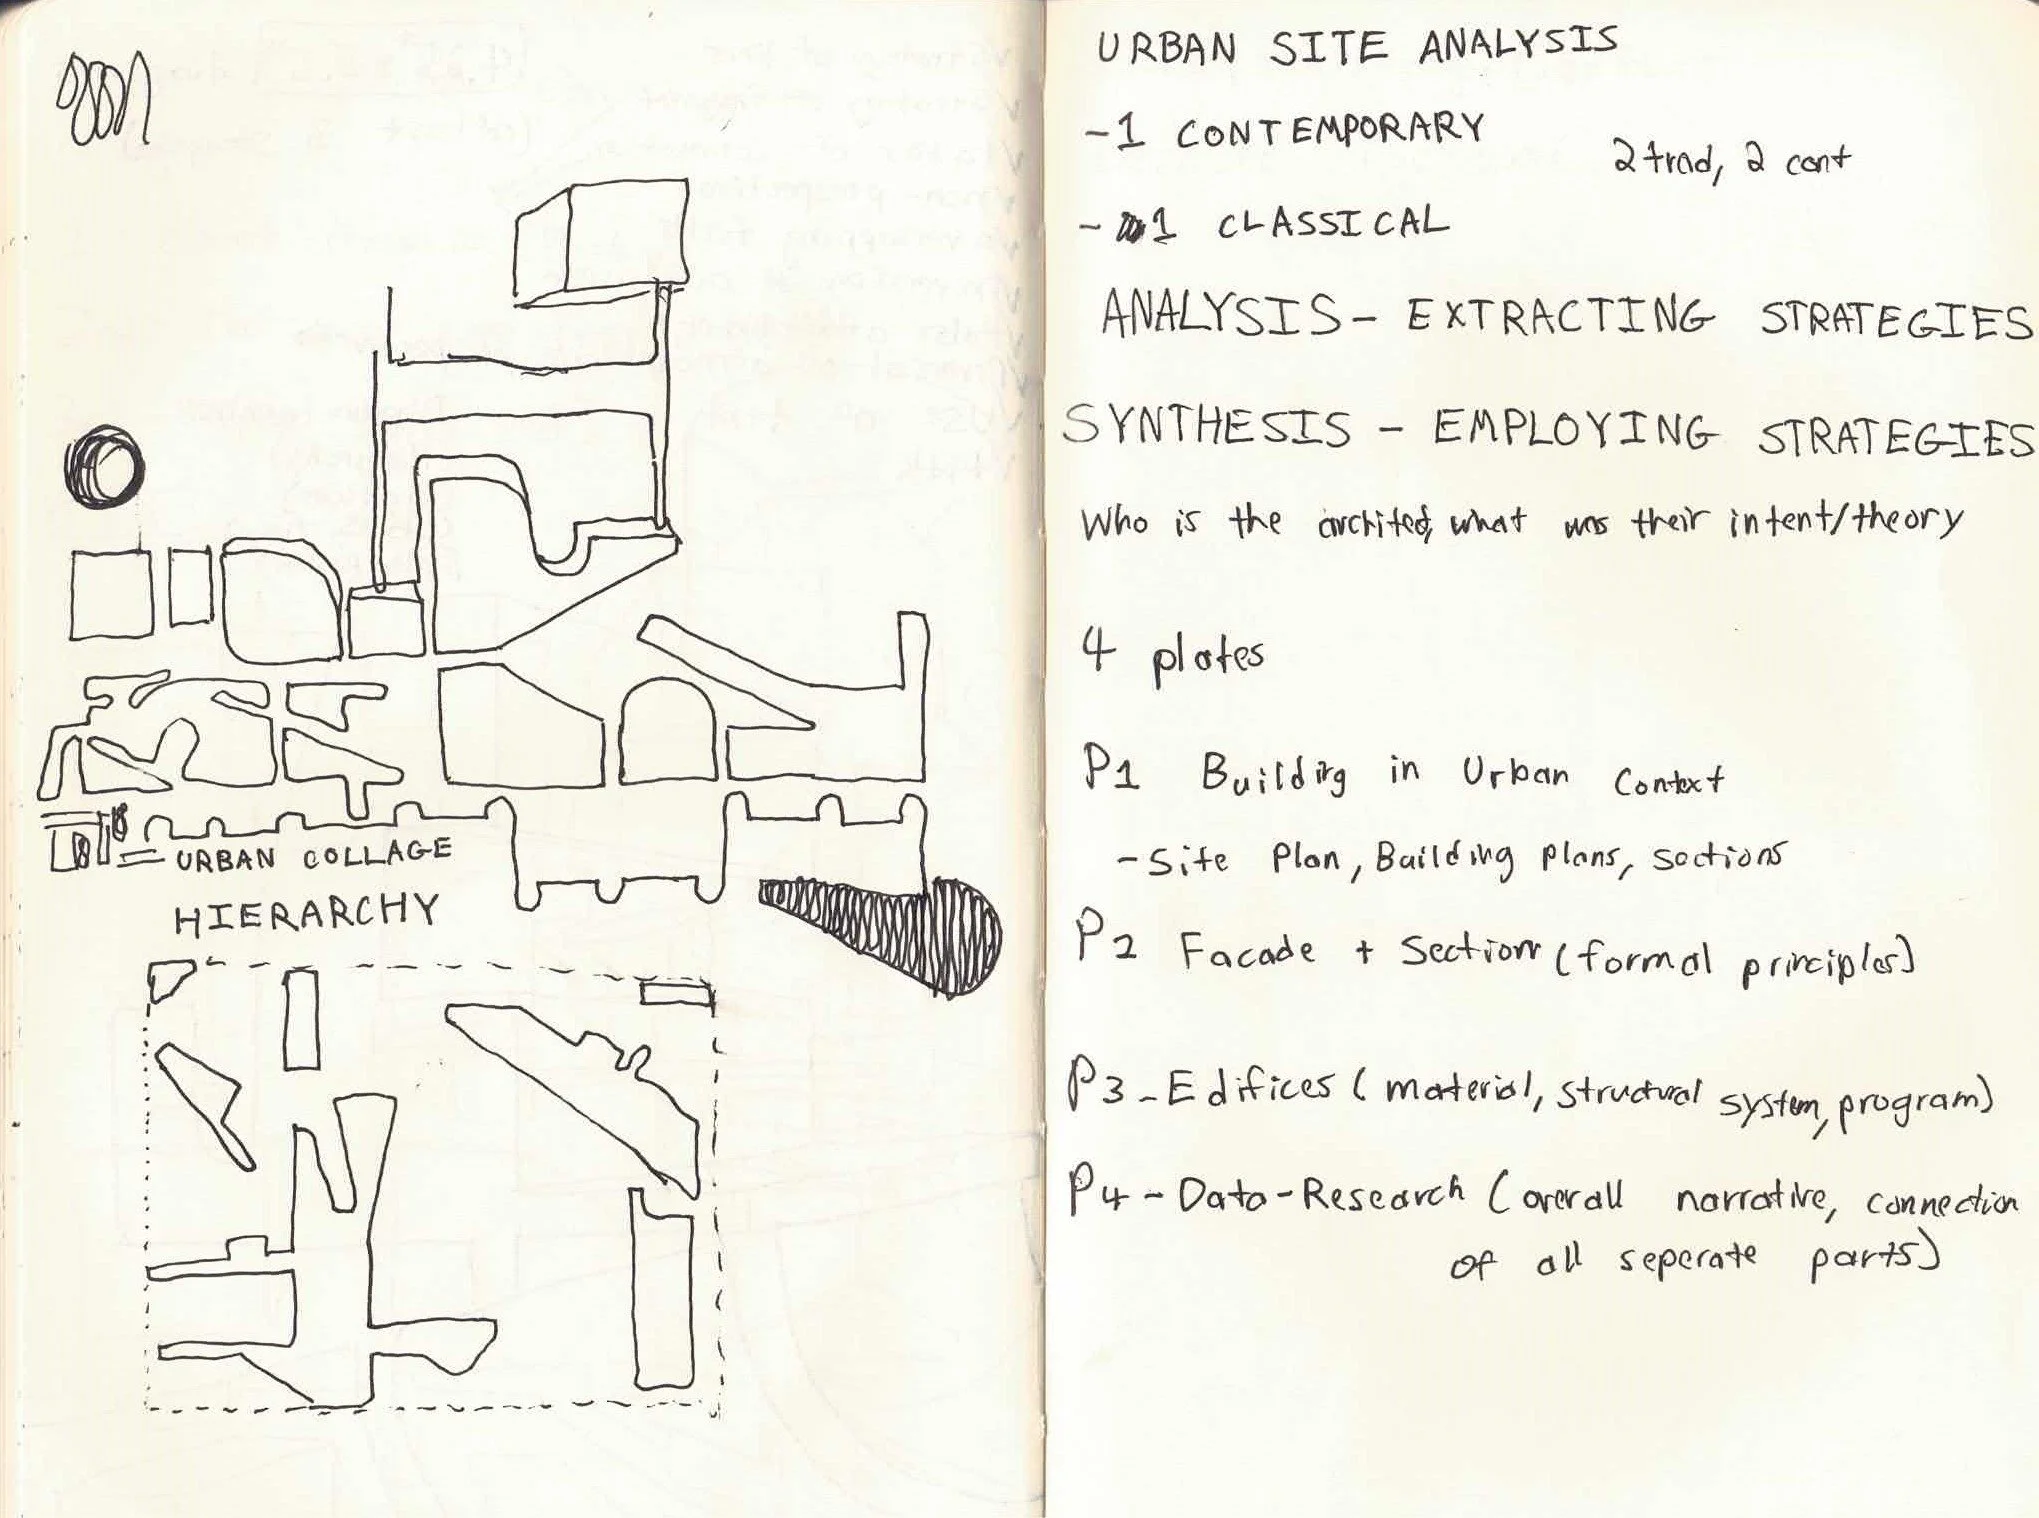 URBAN COLLAGE
HIERARCHY
URBAN SITE ANALYSIS
-1 CONTEMPORARY
2 trad, 2 cont
- 1 CLASSICAL
ANALYSIS - EXTRACTING STRATEGIES
SYNTHESIS - EMPLOYING STRATEGIES
Who is the architect, what was their intent/theory
4 plates
P1 Building in Urban Context
- Site Plan, Building plans, sections
P2 Facade + Section (formal principles)
P3 - Edifices (material, structural system, program)
P4 - Data-Research (overall narrative, connection
of all seperate parts)